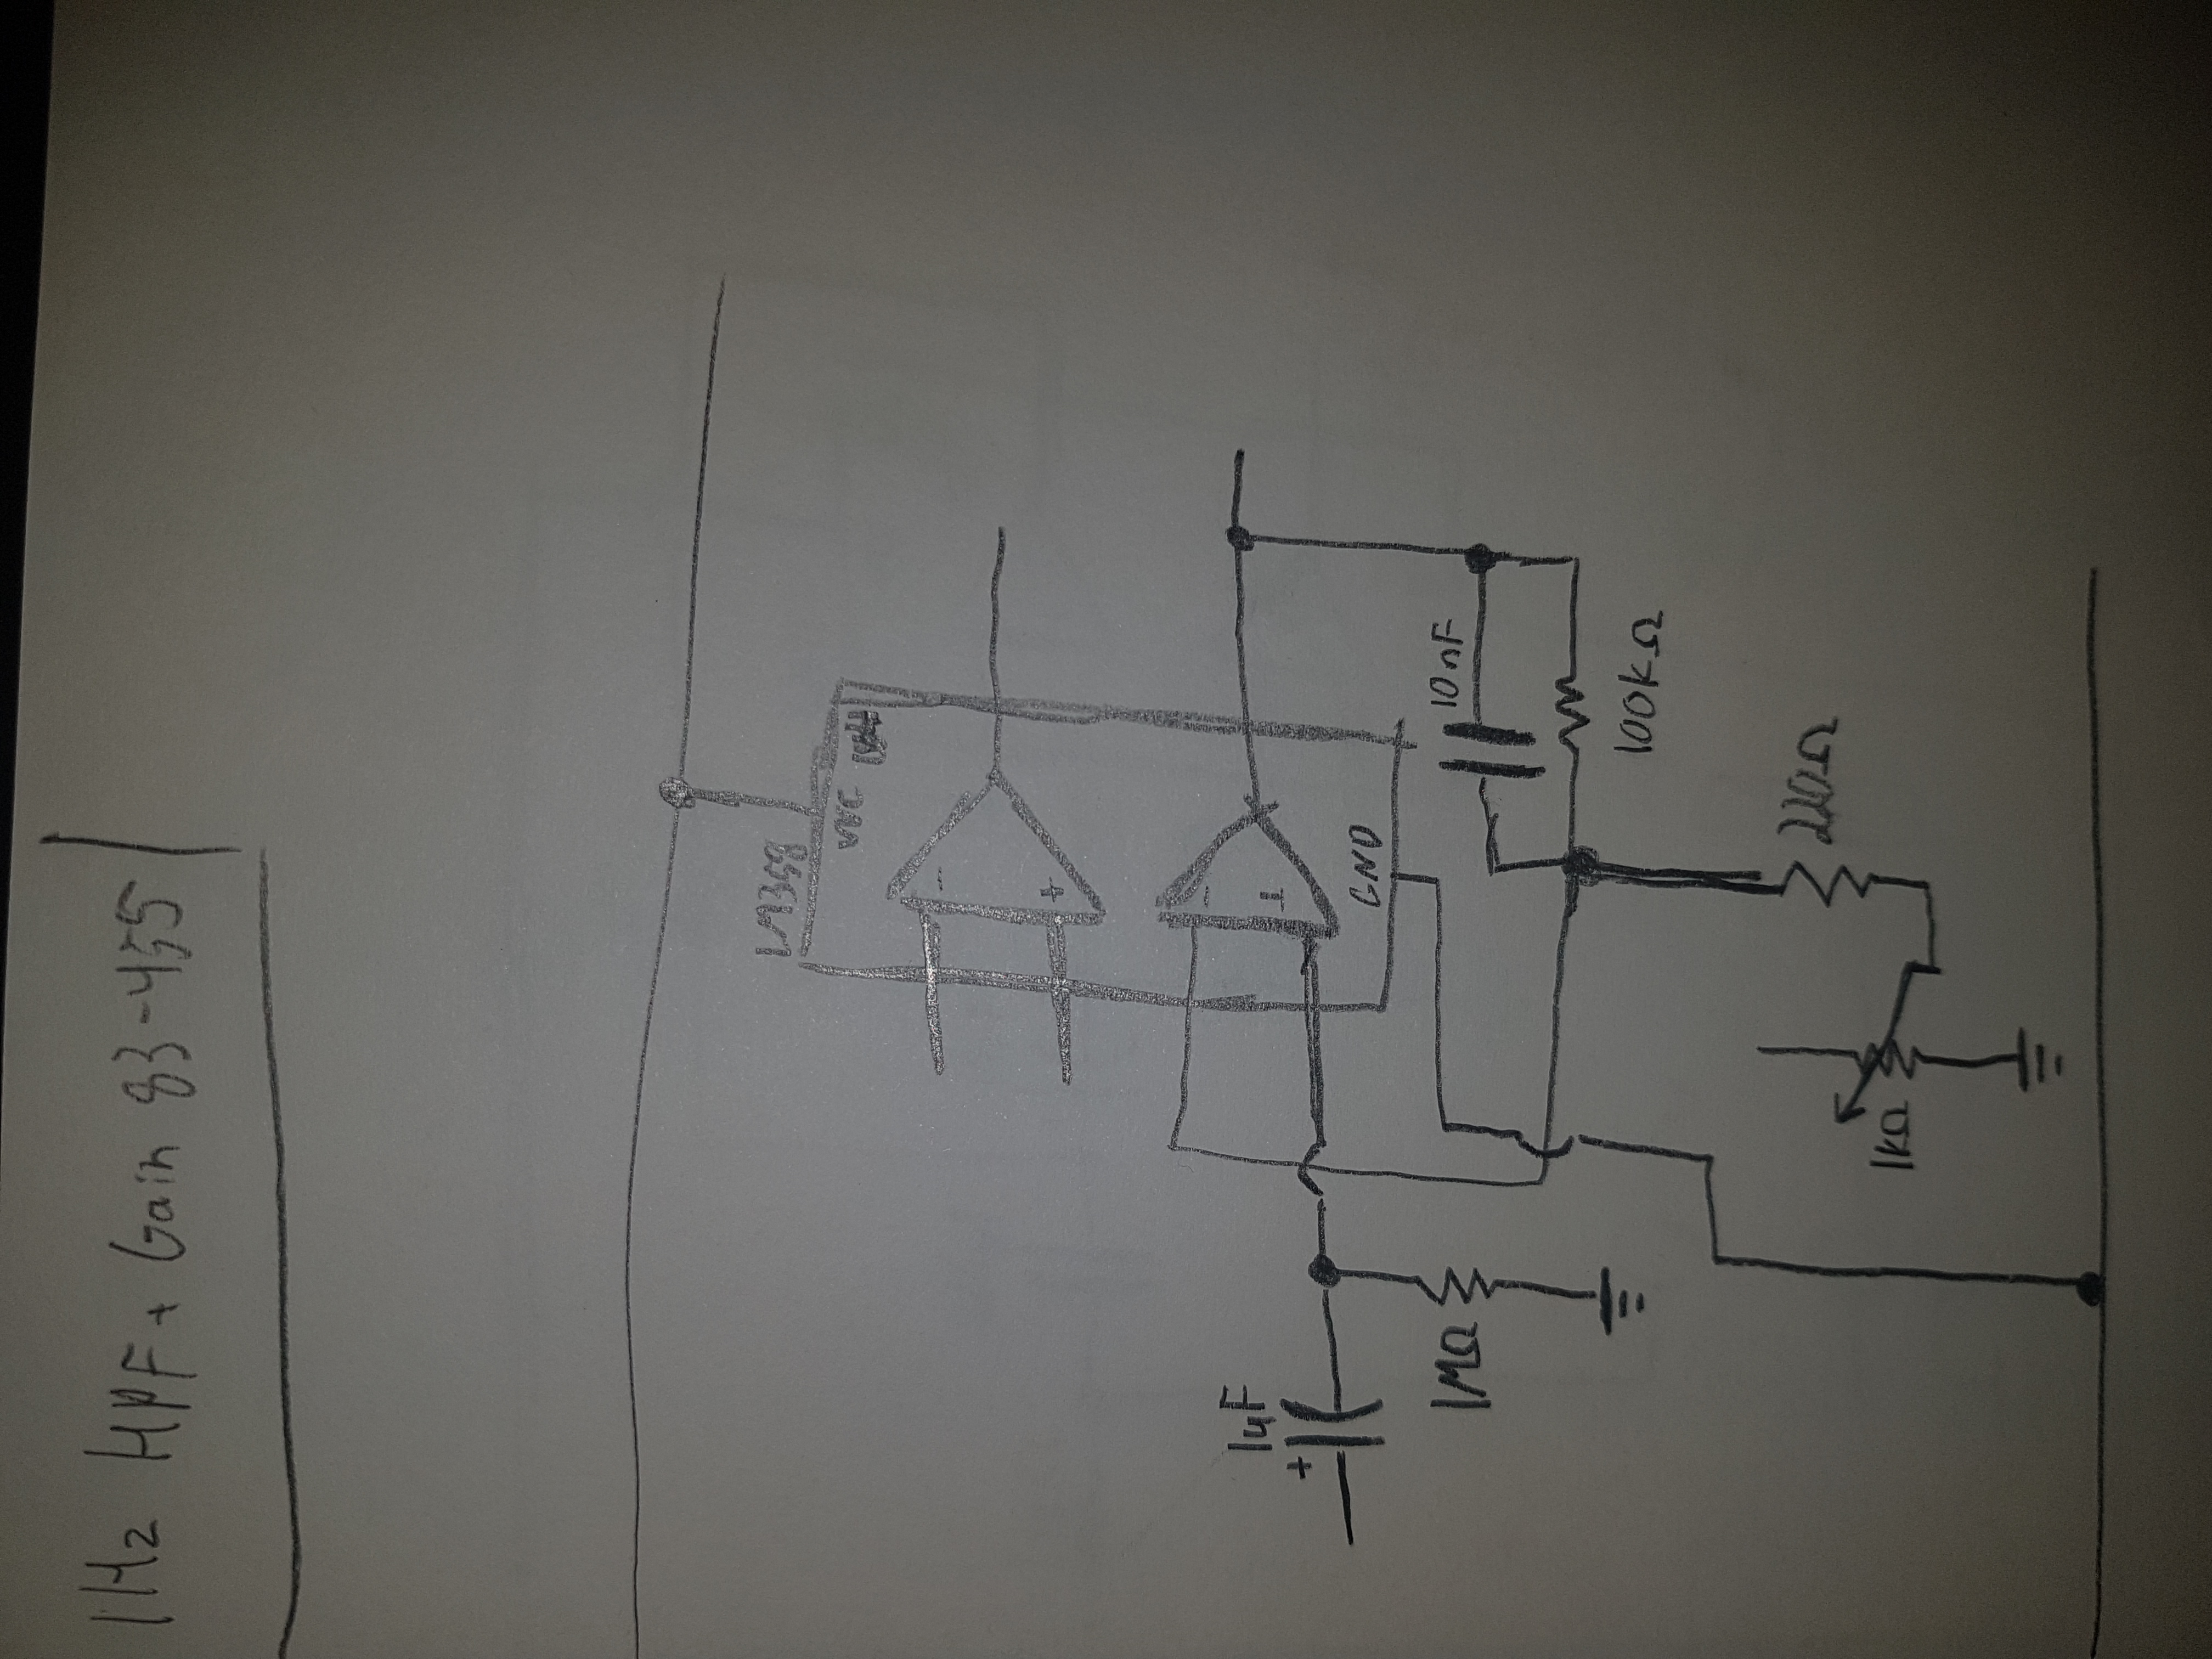 1Hz HPF + Gain 83-455
LM358
VCC
-
+
-
+
1uF
+
GND
10nF
1MΩ
100kΩ
220Ω
1kΩ